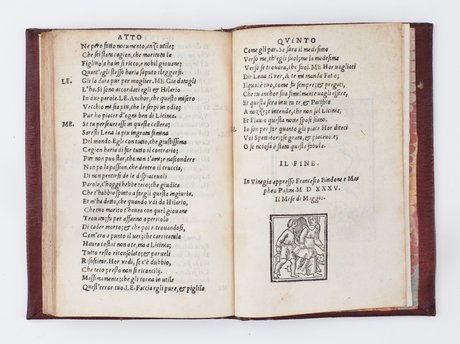 ATTO
Ne però fatto nocumento, anzi utile;
Che sei stata cagion, che maritata la
Figliuola ha in sì ricco, nobil giovane;
Quant'egli stesso havria saputo eleggersi.
LE. Gie la darà pur per moglier. ME. Gia datogli
L'ha. Si sono accordati egli & Hilario
In due parole. LE. Anchor, che questo misero
Vecchio mi sia più, che le serpi in odio;
Pur ho piacer d'ogni ben di Licinia.
ME. Se tu perseverassi in questa collera
Saresti Lena la più ingrata femina
Del mondo. Egli con tutto, che giustissima
Cagion havria di far tutto il contrario;
Pur non può star, che non t'ami; & nascondere
Non può la passion, che dentro il cruccia,
Di non portesi de le dispiacevoli
Parole, c'hoggi hebbe teco; & che giudica
Che t'habbian mossa a far ciò, che facevi.
Et m'ha detto, che quando vdi da Hilario,
Che tuo marito t'havea con quel giovane
Trovata; fu per affanno a pericolo
Di cader morto; & che poi e trovandosi,
Com'era a punto il ver; che carricatula
Havea costui non a te, ma a Licinia;
Tutto resto riconsolato, & per ueli
Rifacisse. Hor vedi, se c'è dubbio,
Che teco presto non si riconcilij.
Massimamente, che stata è più utile
Quest'error tuo. LE. Faccia egli pure, & piglila
QVINTO
Come gli par. Se sarà il medesimo
Verso me, ch'egli suol; me la medesima
Verso se trovara, che suol. ME. Hor vogliati
Dir Lena il ver, A te mi manda Fatio;
Ilqual è tuo, come fu sempre; & pregati,
Che tu anchor sua similmente vogli essere,
Et questa sera inuita te, & Pacifico
A nozze; & intende, che non sol Licinia,
Et Flauio questa notte sposi siano.
Io son per far quanto gli piace. Hor dieci
Voi Spettatori; grati, & piacevoli;
O se noiosa è stata questa fabula.
IL FINE.
In Vinegia appresso Francesco Bindone e Maapheo
Pasini. M D XXXV.
Il Mese di Maggio.